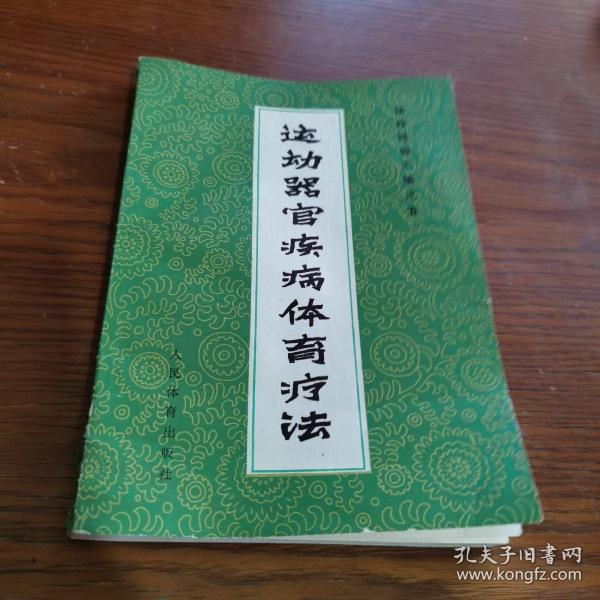 运动器官疾病体育疗法
人民体育出版社
孔夫子旧书网
www.kongfz.com